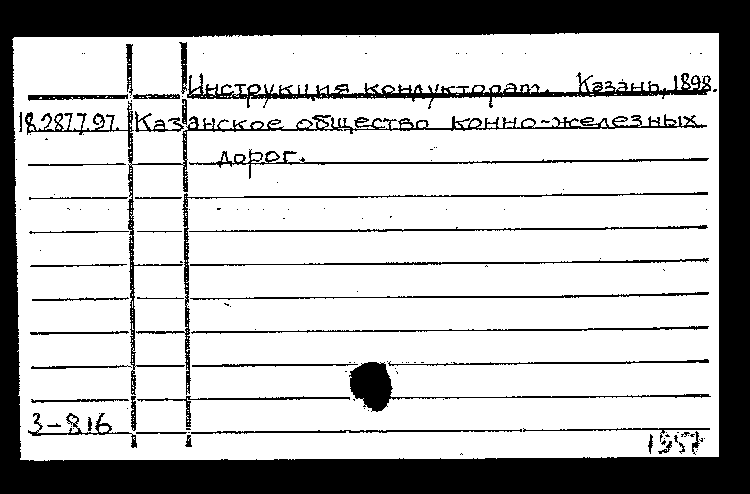 Инструкция кондукторам. Казань, 1898.
18.287.7.97. Казанское общество конно-железных
дорог.
3-816
1957